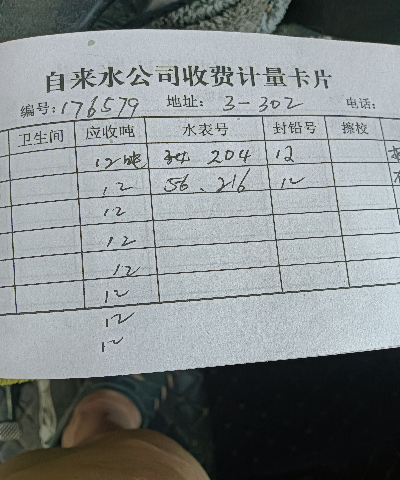 自来水公司收费计量卡片
编号:176579 地址: 3-302 电话:
卫生间 应收吨 水表号 封铅号 擦校
12吨 204 12
12 56.216 12
12
12
12
12
12
12